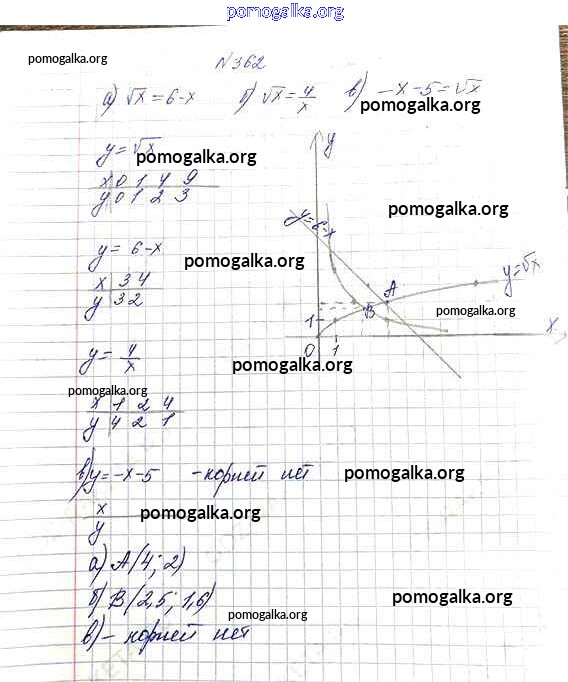 pomogalka.org
N 362
pomogalka.org
а) √x = 6-x б) √x = 4/x в) -x-5 = √x
pomogalka.org
y = √x
pomogalka.org
x 0 1 4 9
y 0 1 2 3
y
pomogalka.org
y=6-x
y = 6-x
pomogalka.org
x 3 4
y 3 2
y=√x
A
B
pomogalka.org
1
x
0 1
y = 4/x
pomogalka.org
pomogalka.org
x 1 2 4
y 4 2 1
в) y = -x-5 -корней нет
pomogalka.org
x
y
pomogalka.org
а) A(4; 2)
б) B(2,5; 1,6)
pomogalka.org
pomogalka.org
в) - корней нет